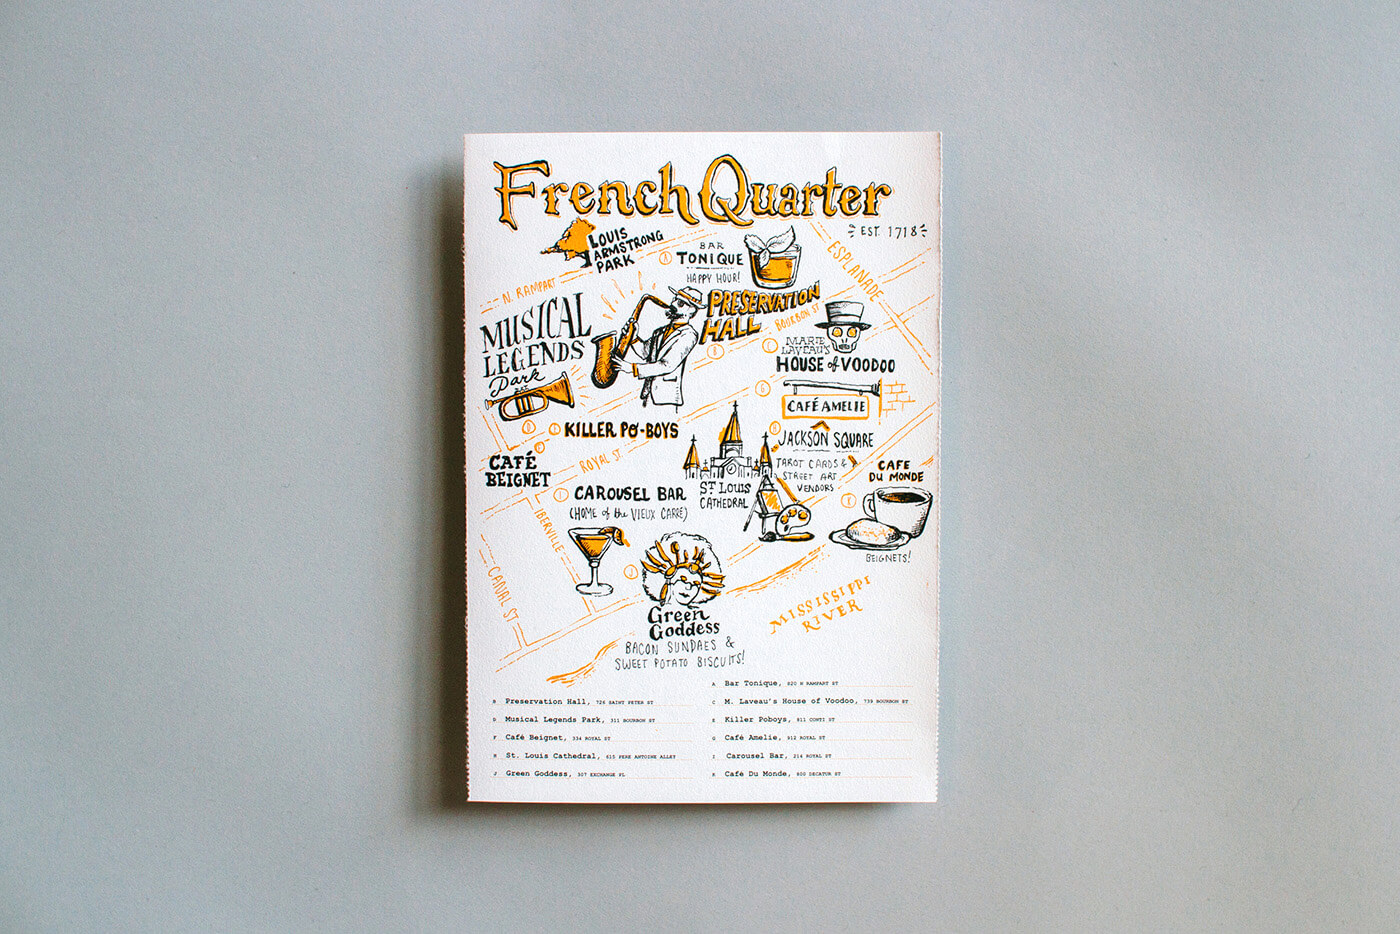 French Quarter
EST. 1718
LOUIS
ARMSTRONG
PARK
A
BAR
TONIQUE
HAPPY HOUR!
ESPLANADE
N. RAMPART
MUSICAL
LEGENDS
Park
PRESERVATION
HALL
BOURBON ST
B
C
MARIE
LAVEAU'S
HOUSE of VOODOO
G
CAFÉ AMELIE
D
E
KILLER PO-BOYS
H
JACKSON SQUARE
TAROT CARDS &
STREET ART
VENDORS
F
CAFÉ
BEIGNET
ROYAL ST.
ST. LOUIS
CATHEDRAL
CAFE
DU MONDE
K
BEIGNETS!
I
CAROUSEL BAR
(HOME of the VIEUX CARRÉ)
IBERVILLE
CANAL ST
J
Green
Goddess
BACON SUNDAES &
SWEET POTATO BISCUITS!
MISSISSIPPI
RIVER
A Bar Tonique, 820 N RAMPART ST
B Preservation Hall, 726 SAINT PETER ST
C M. Laveau's House of Voodoo, 739 BOURBON ST
D Musical Legends Park, 311 BOURBON ST
E Killer Poboys, 811 CONTI ST
F Café Beignet, 334 ROYAL ST
G Café Amelie, 912 ROYAL ST
H St. Louis Cathedral, 615 PERE ANTOINE ALLEY
I Carousel Bar, 214 ROYAL ST
J Green Goddess, 307 EXCHANGE PL
K Café Du Monde, 800 DECATUR ST